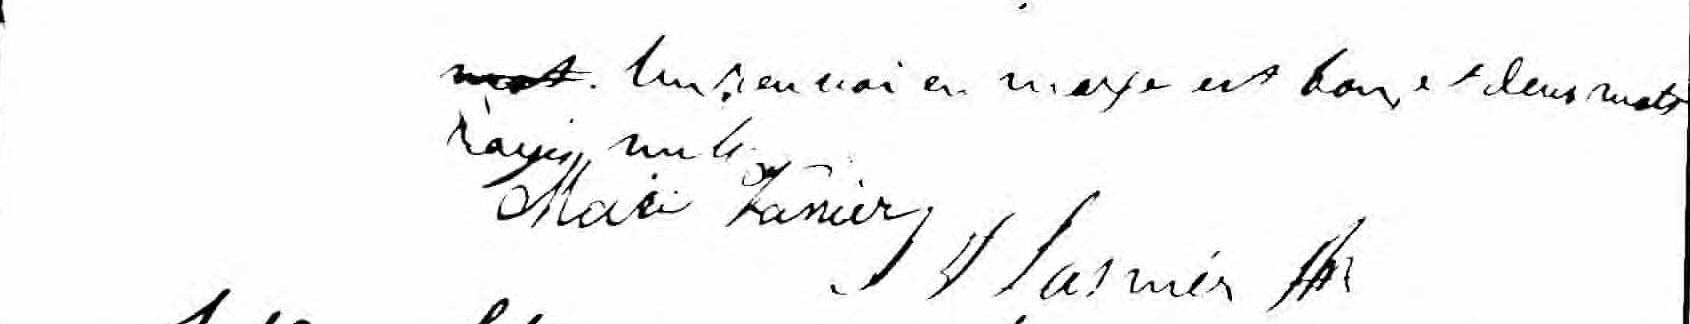 mot. Un renvoi en marge est bon, et deux mots
rayés nuls
Marie Vanier